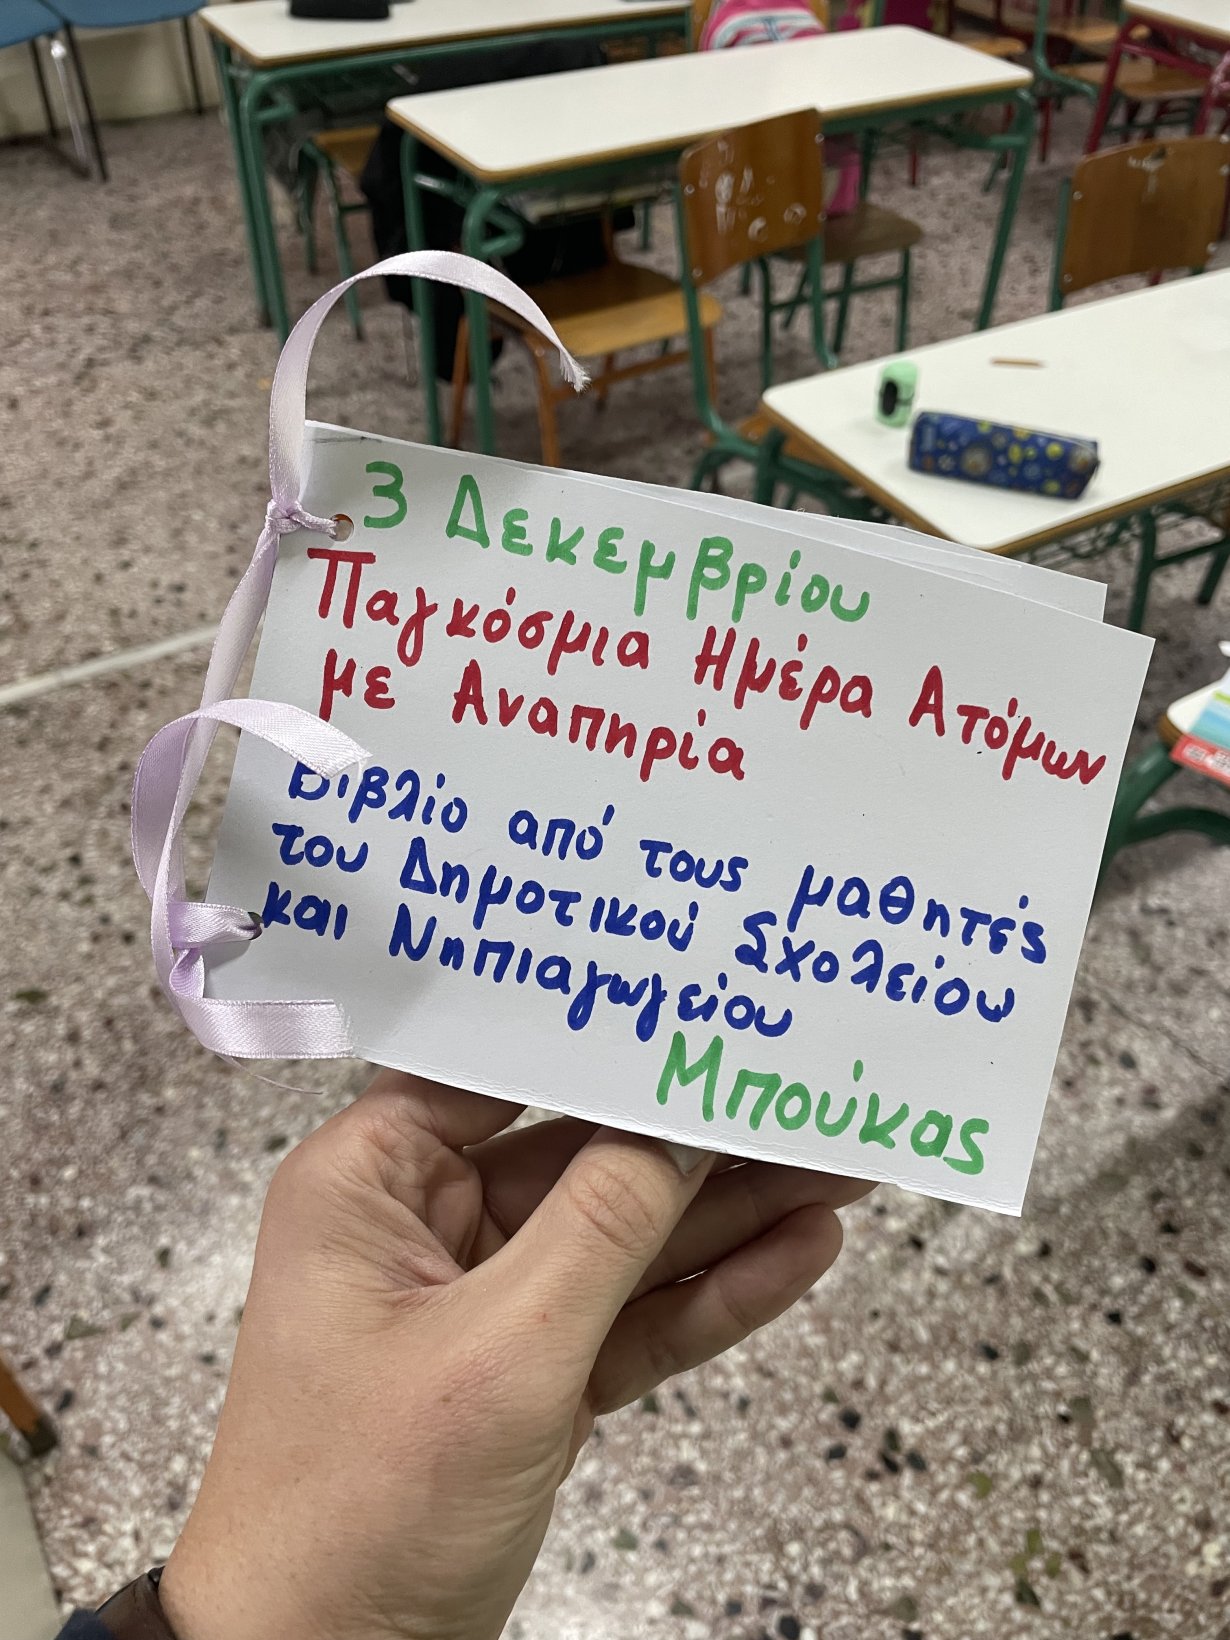 3 Δεκεμβρίου
Παγκόσμια Ημέρα Ατόμων
με Αναπηρία
Βιβλίο από τους μαθητές
του Δημοτικού Σχολείου
και Νηπιαγωγείου
Μπούκας